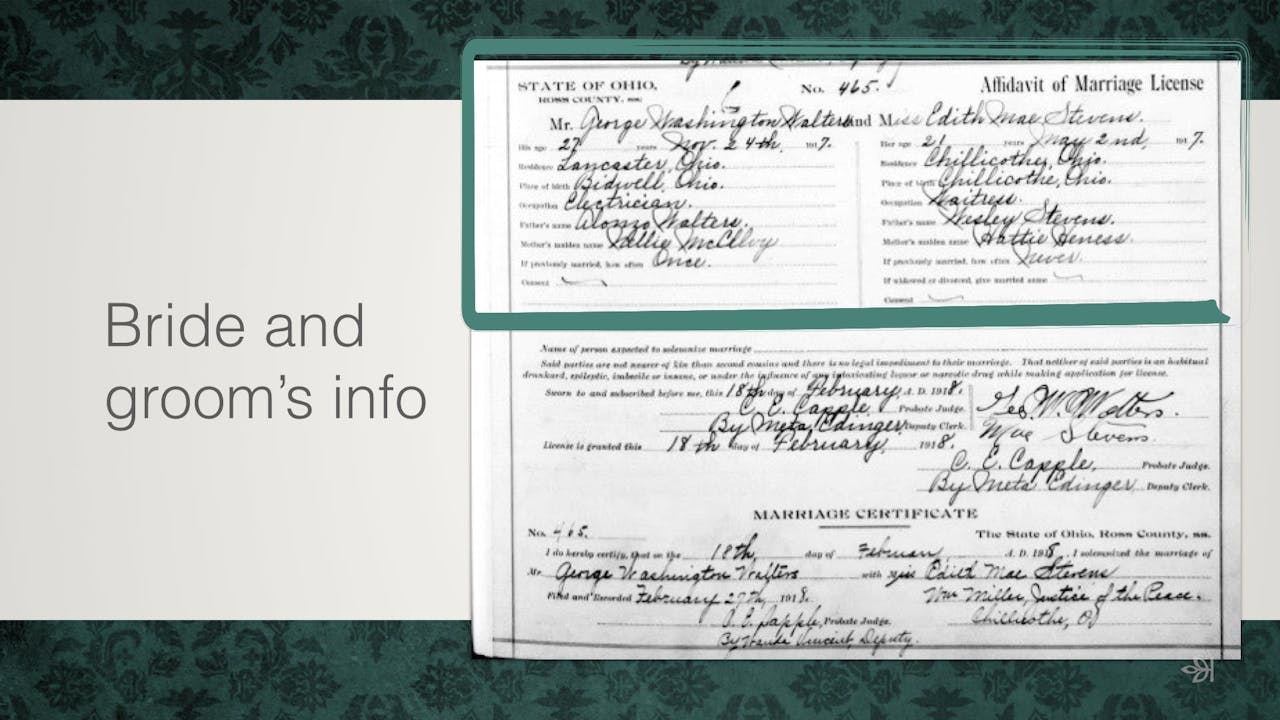 Bride and
groom's info
STATE OF OHIO,
ROSS COUNTY, ss:
No. 465.
Affidavit of Marriage License
Mr. George Washington Walters and Miss Edith Mae Stevens.
His age 27 years Nov. 24th, 1917.
Residence Lancaster, Ohio.
Place of birth Bidwell, Ohio.
Occupation Electrician.
Father's name Alonzo Walters.
Mother's maiden name
If previously married, how often Once.
Consent
Her age 21 years May 2nd, 1917.
Residence Chillicothe, Ohio.
Place of birth Chillicothe, Ohio.
Occupation Waitress.
Father's name Wesley Stevens.
Mother's maiden name Hattie Heness.
If previously married, how often Never.
If widowed or divorced, give married name
Consent
Name of person expected to solemnize marriage
Said parties are not nearer of kin than second cousins and there is no legal impediment to their marriage. That neither of said parties is an habitual
drunkard, epileptic, imbecile or insane, or under the influence of any intoxicating liquor or narcotic drug while making application for license.
Sworn to and subscribed before me, this 18th day of February, A. D. 1918.
C. E. Capple, Probate Judge.
By Meta Edinger Deputy Clerk.
Geo. W. Walters.
Mae Stevens.
License is granted this 18th day of February, 1918.
C. E. Capple, Probate Judge.
By Meta Edinger Deputy Clerk.
MARRIAGE CERTIFICATE
No. 465.
The State of Ohio, Ross County, ss.
I do hereby certify, that on the 18th day of February A. D. 1918, I solemnized the marriage of
Mr. George Washington Walters with Miss Edith Mae Stevens
Filed and Recorded February 27th, 1918.
Wm Miller, Justice of the Peace.
C. E. Capple, Probate Judge.
Chillicothe, O.
By Vincent, Deputy.